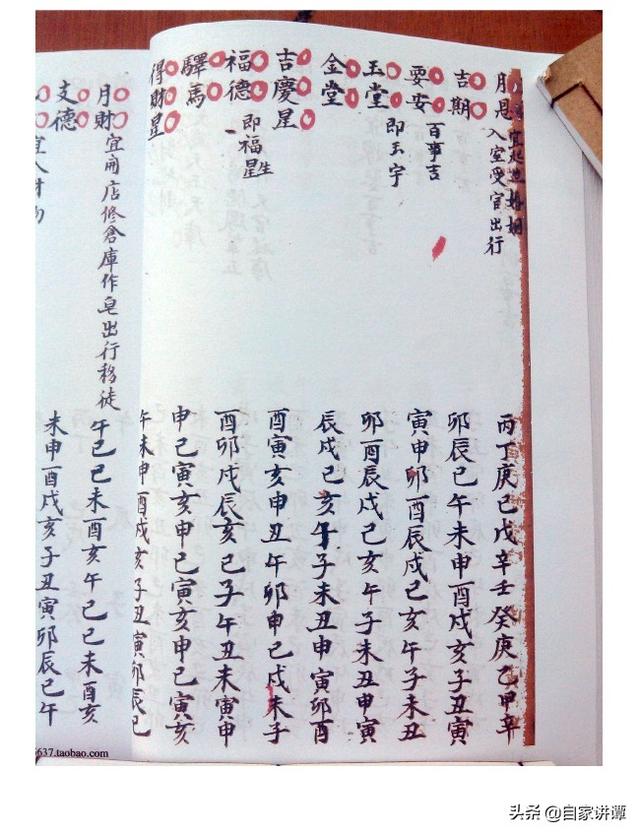 月恩 宜起造婚姻
入室受官出行
丙丁庚己戊辛壬癸庚乙甲辛
吉期 卯辰巳午未申酉戌亥子丑寅
要安 百事吉 寅申卯酉辰戌巳亥午子未丑
玉堂 即玉宇 卯酉辰戌巳亥午子未丑申寅
金堂 辰戌巳亥午子未丑申寅卯酉
吉慶星 酉寅亥申丑午卯申巳戌未子
福德 即福星生 酉卯戌辰亥巳子午丑未寅申
驛馬 申巳寅亥申巳寅亥申巳寅亥
得財星 午未申酉戌亥子丑寅卯辰巳
月財 宜開店修倉庫作皂出行移徒 午巳巳未酉亥午巳巳未酉亥
支德 未申酉戌亥子丑寅卯辰巳午
宜入財
637.taobao.com
头条 @自家讲谭